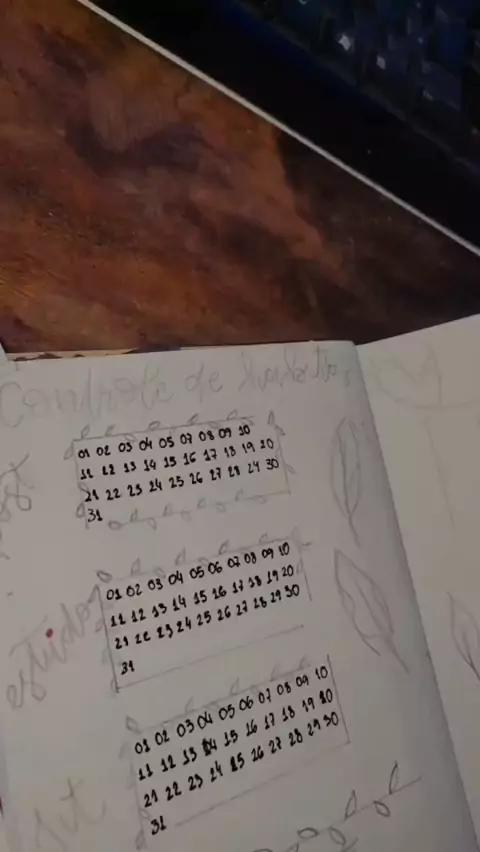 Controle de habitos
01 02 03 04 05 07 08 09 10
11 12 13 14 15 16 17 18 19 20
21 22 23 24 25 26 27 28 24 30
31
estudos
01 02 03 04 05 06 07 08 09 10
11 12 13 14 15 16 17 18 19 20
21 22 23 24 25 26 27 28 29 30
31
01 02 03 04 05 06 07 08 09 10
11 12 13 14 15 16 17 18 19 20
21 22 23 24 25 26 27 28 29 30
31